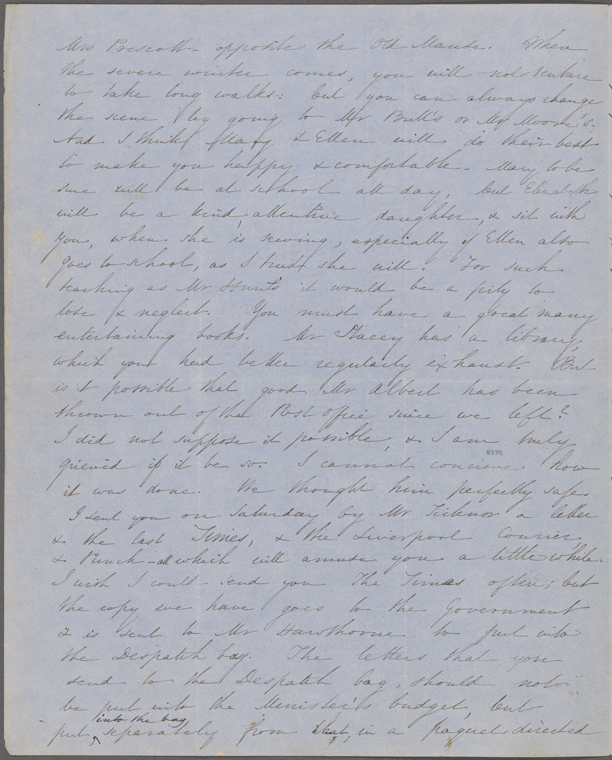 Mrs Prescott - opposite the Old Manse. When
the severe winter comes, you will not venture
to take long walks: but you can always change
the scene by going to Mr Bull's or Mr Moore's.
And I think Mary & Ellen will do their best
to make you happy & comfortable - Mary to be
sure will be at school all day, but Elizabeth
will be a kind, attentive daughter, & sit with
you, when she is sewing, especially if Ellen also
goes to school, as I trust she will. For such
teaching as Mr Hunt's it would be a pity to
lose & neglect. You must have a great many
entertaining books. Mr Stacey has a library,
which you had better regularly exhaust. But
is it possible that good Mr Albert has been
thrown out of the Post office since we left?
I did not suppose it possible, & I am truly
grieved if it be so. I cannot conceive how
NYPL
it was done. We thought him perfectly safe.
I sent you on Saturday by Mr Ticknor a letter
& the last Times, & the Liverpool Courier,
& Punch - all which will amuse you a little while.
I wish I could send you The Times often; but
the copy we have goes to the Government
& is sent to Mr Hawthorne to put into
the Despatch bag. The letters that you
send to the Despatch bag, should not
be put into the Minister's budget, but
into the bag
put separately from that, in a paquet directed